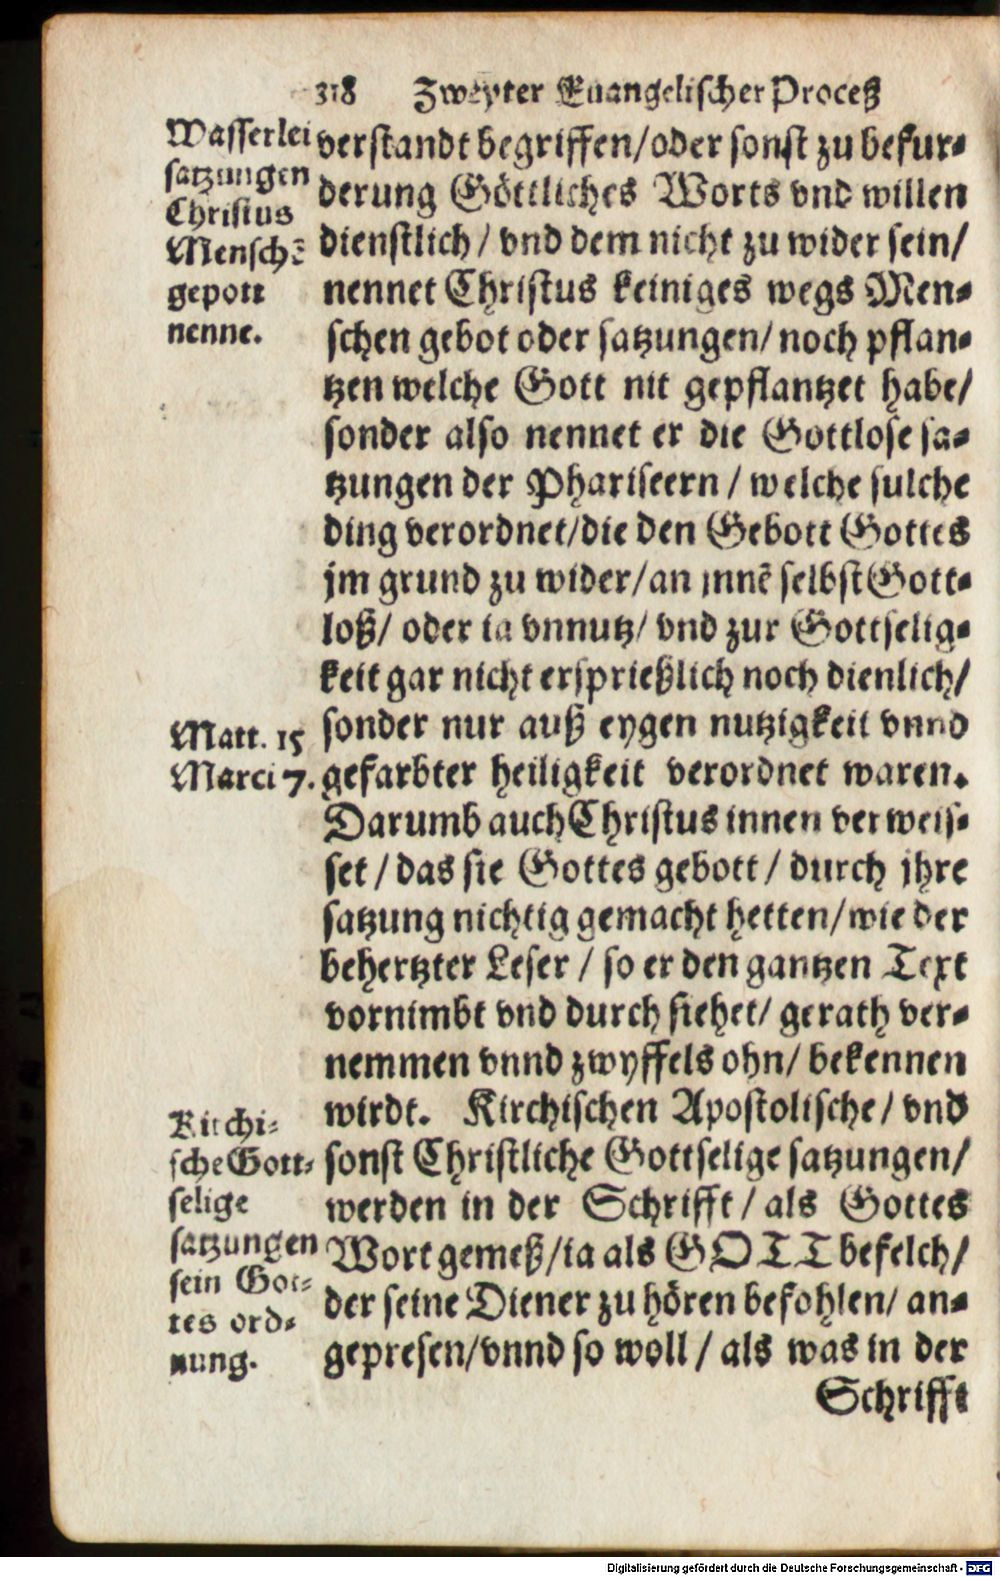 318 Zweyter Euangelischer Proceß
Wasserlei
satzungen
Christus
Menschē
gepott
nenne.
verstandt begriffen/oder sonst zu befur-
derung Göttliches Worts vnd willen
dienstlich / vnd dem nicht zu wider sein/
nennet Christus keiniges wegs Men-
schen gebot oder satzungen/ noch pflan-
tzen welche Gott nit gepflantzet habe/
sonder also nennet er die Gottlose sa-
tzungen der Phariseern / welche sulche
ding verordnet/die den Gebott Gottes
jm grund zu wider/an jnnē selbst Gott-
loß/ oder ia vnnutz/ vnd zur Gottselig-
keit gar nicht ersprießlich noch dienlich/
sonder nur auß eygen nutzigkeit vnnd
Matt. 15
Marci 7.
gefarbter heiligkeit verordnet waren.
Darumb auch Christus innen verweis-
set / das sie Gottes gebott / durch jhre
satzung nichtig gemacht hetten/wie der
behertzter Leser / so er den gantzen Text
vornimbt vnd durch siehet/ gerath ver-
nemmen vnnd zwyffels ohn/ bekennen
wirdt. Kirchischen Apostolische/ vnd
Kirchi-
sche Gott-
selige
satzungen
sein Got-
tes ord-
nung.
sonst Christliche Gottselige satzungen/
werden in der Schrifft / als Gottes
Wort gemeß/ia als GOTT befelch/
der seine Diener zu hören befohlen/ an-
gepresen/vnnd so woll / als was in der
Schrifft
Digitalisierung gefördert durch die Deutsche Forschungsgemeinschaft - DFG